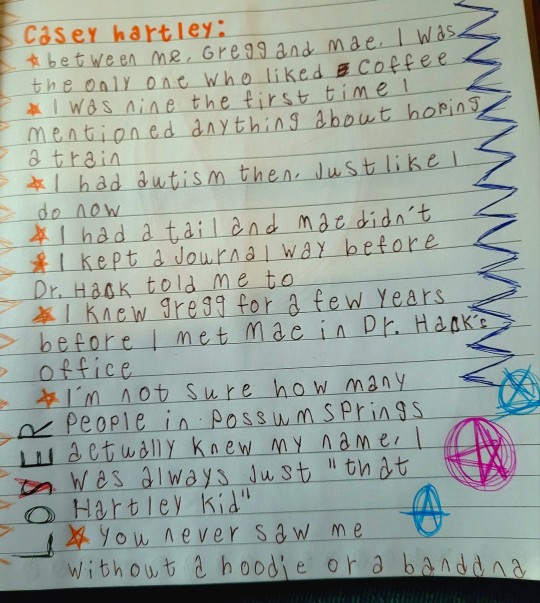 Casey hartley:
★ between me, Gregg and mae, I was
the only one who liked coffee
★ I was nine the first time I
mentioned anything about hoping
a train
★ I had autism then, Just like I
do now
★ I had a tail and mae didn't
★ I kept a Journal way before
Dr. Hank told me to
★ I knew gregg for a few years
before I met mae in Dr. Hank's
office
★ I'm not sure how many
People in Possum springs
actually knew my name, I
was always Just "that
Hartley kid"
★ You never saw me
without a hoodie or a bandana
LOSER